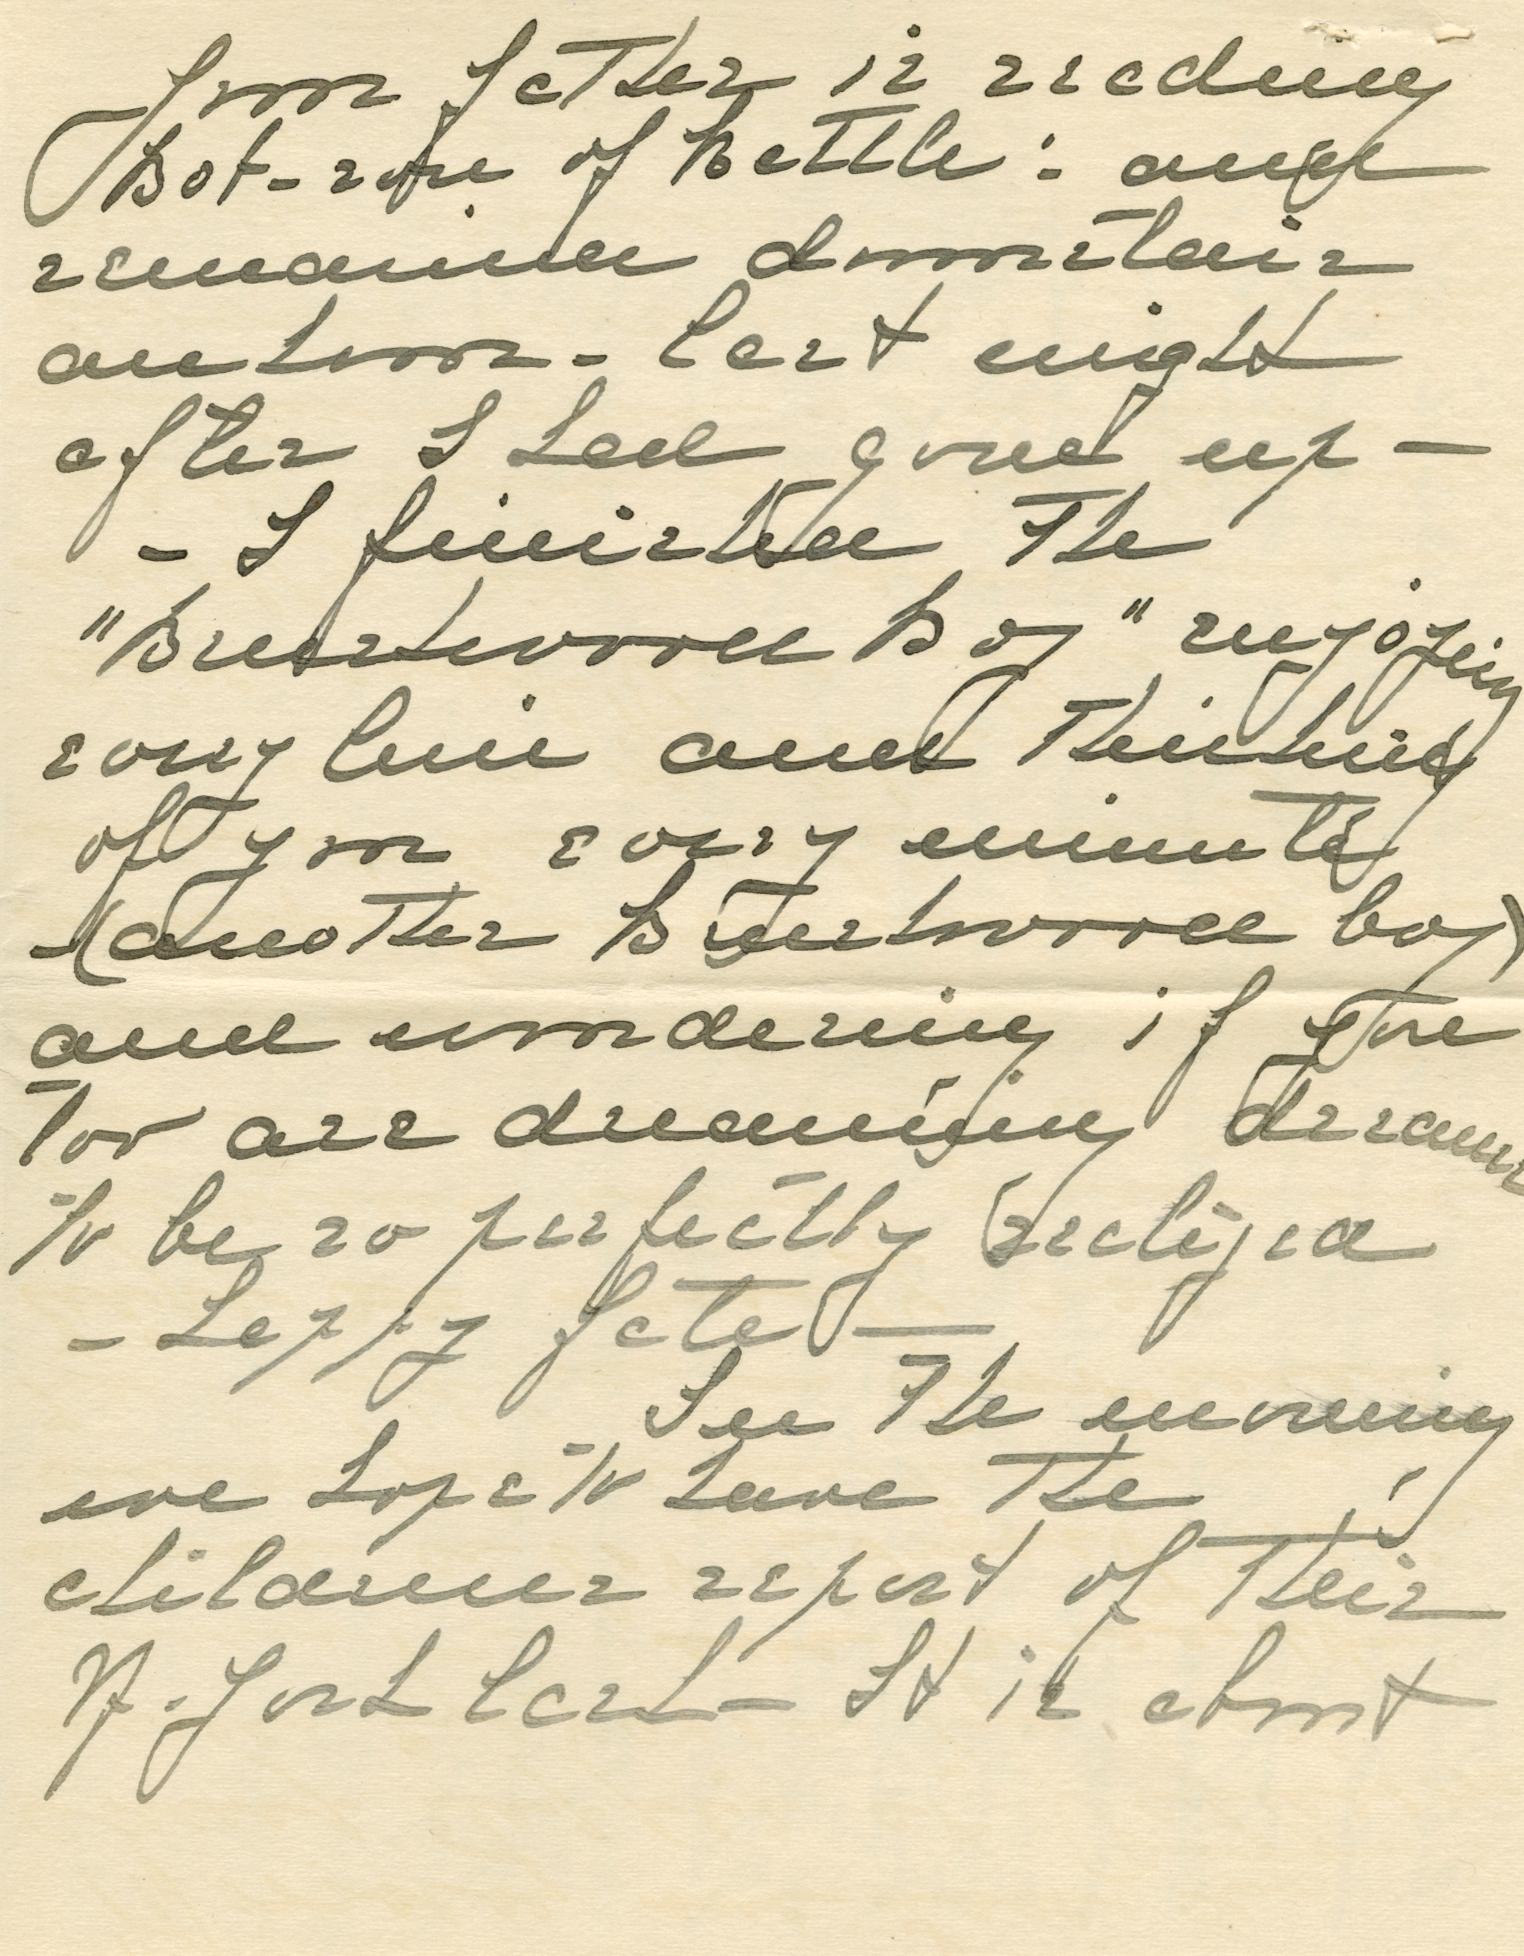 Your father is reading
Bob, son of Battle: and
remained downstairs
an hour - last night
after I had gone up -
- I finished the
"Brushwood Boy" enjoying
every line and thinking
of you every minute
- (another Brushwood boy)
and wondering if you
too are dreaming dreams
to be so perfectly realized
- Happy fate! —
In the morning
we hope to have the
childrens report of their
N. York lark - It is about